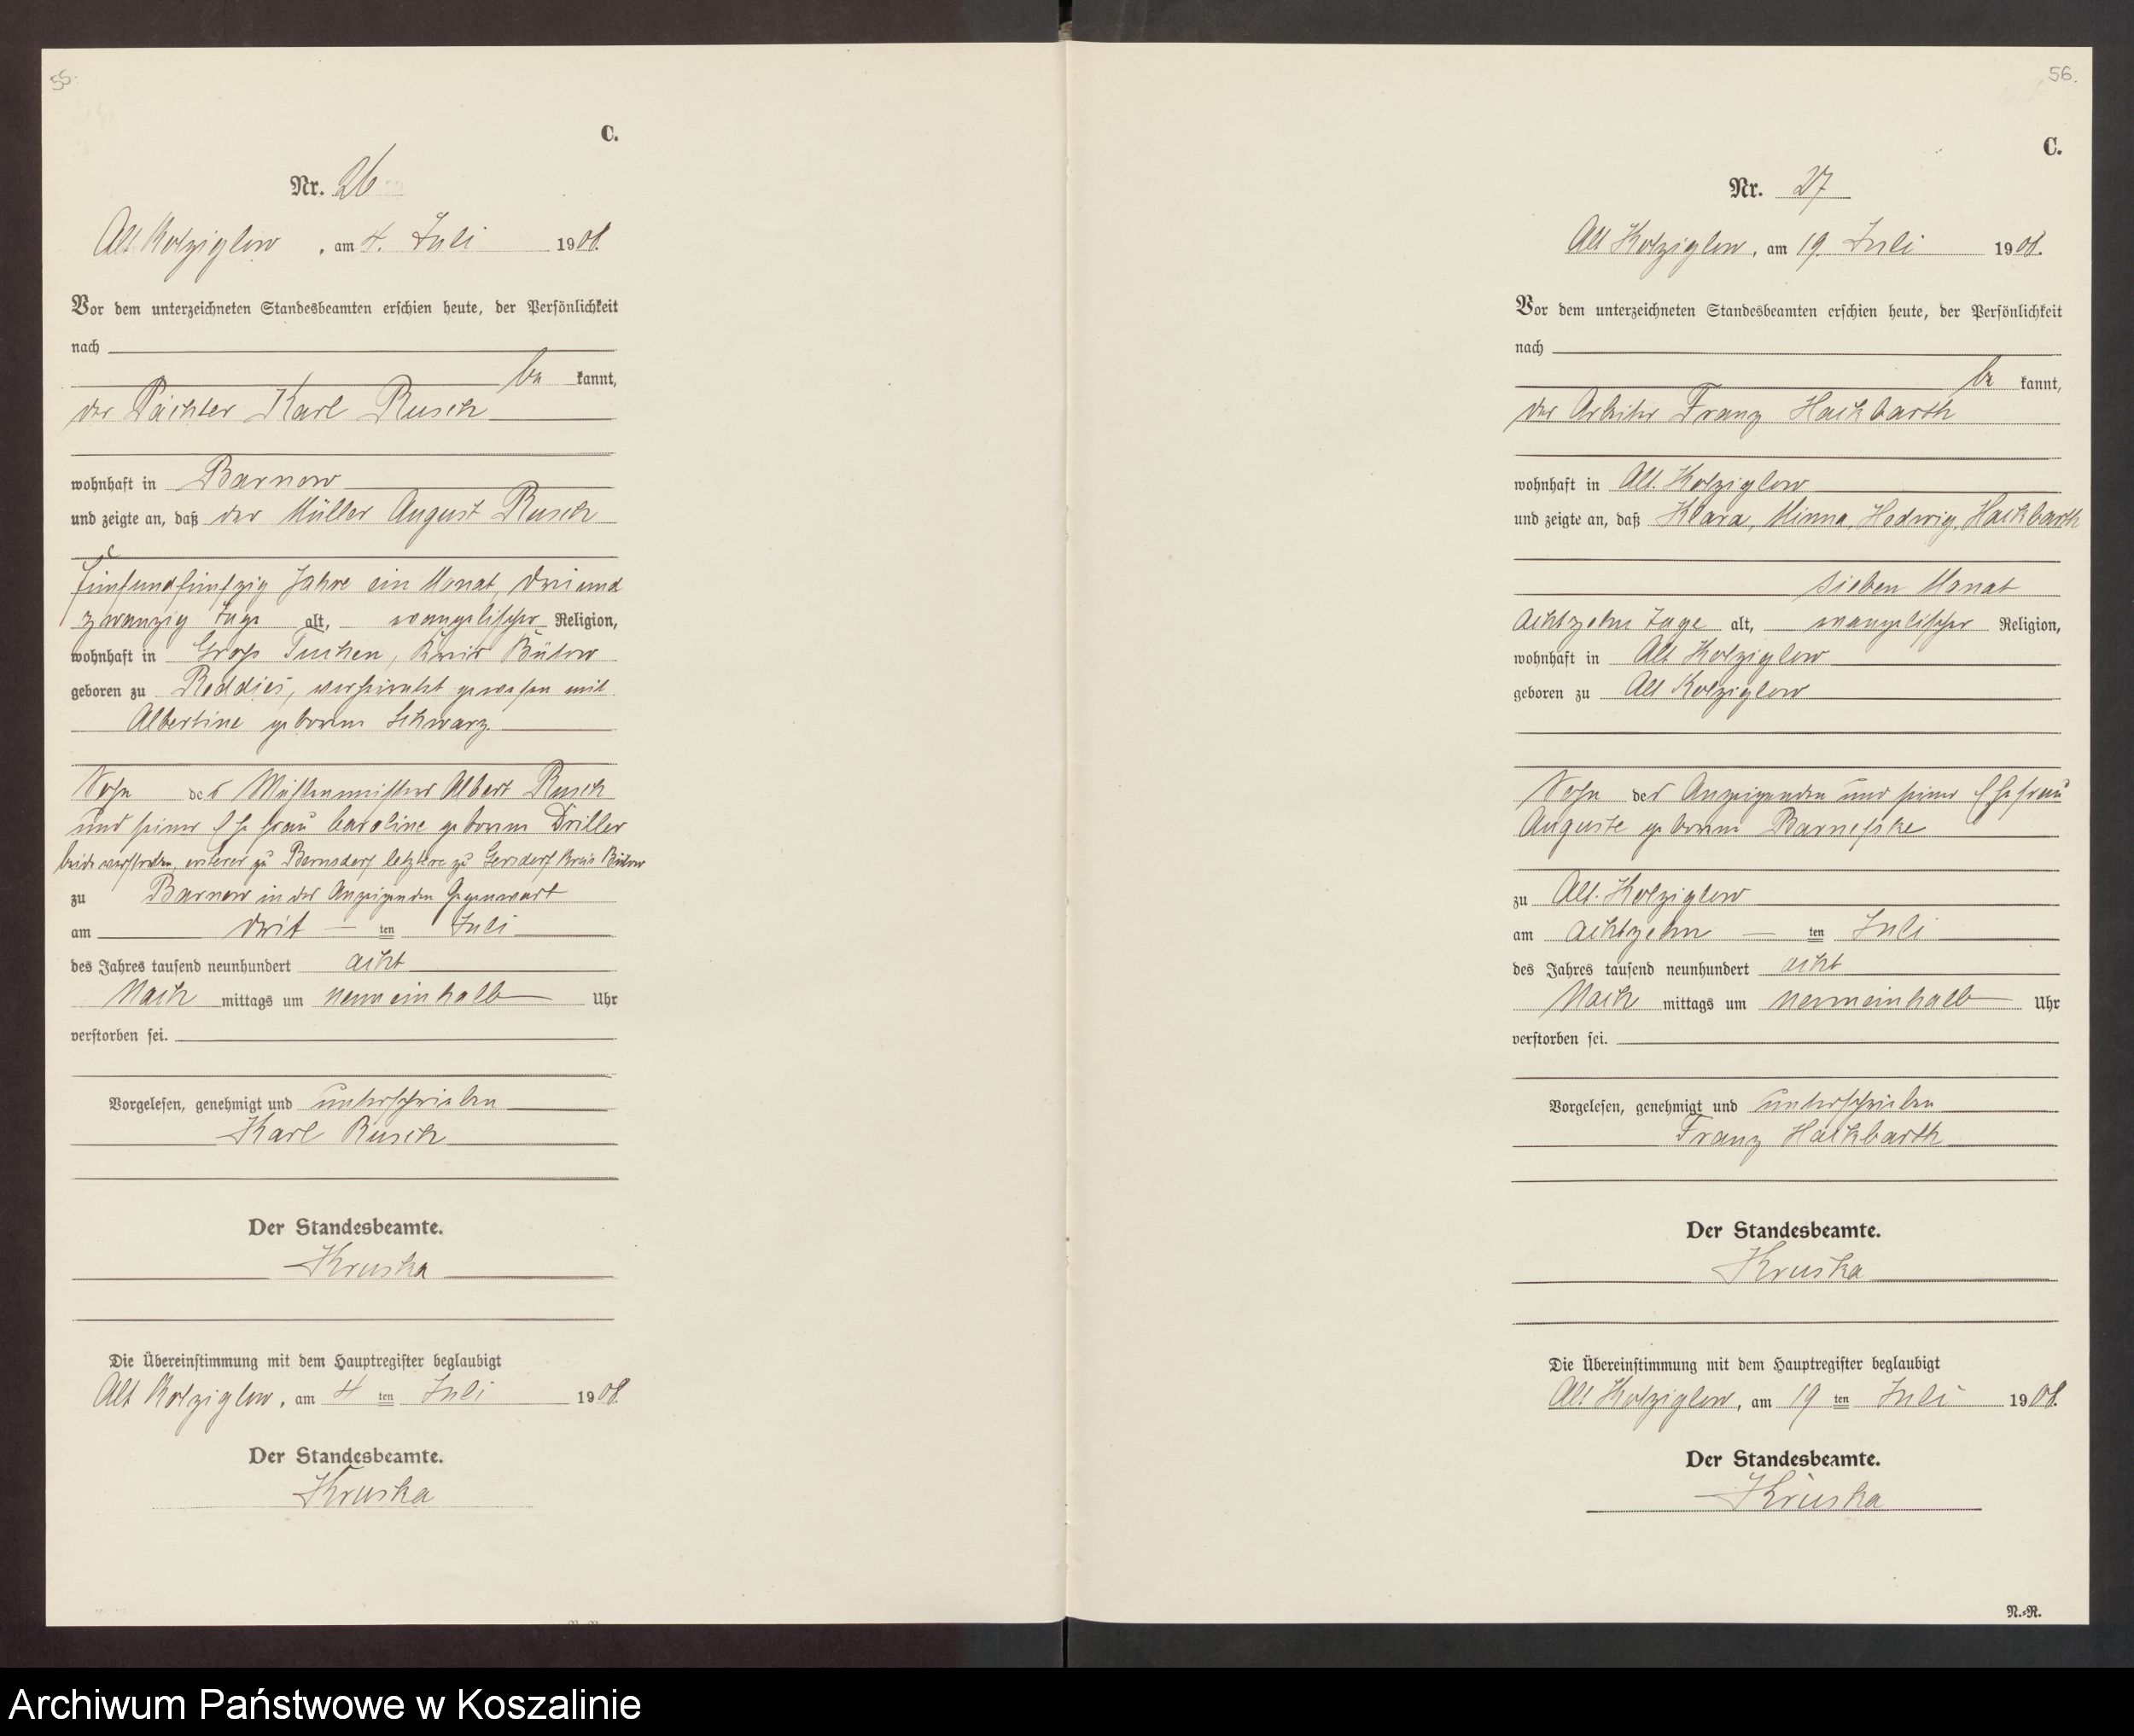 55.
C.
Nr. 26
Alt Kolziglow, am 4. Juli 1908.
Vor dem unterzeichneten Standesbeamten erschien heute, der Persönlichkeit
nach
be kannt,
der Pächter Karl Rusch
wohnhaft in Barnow
und zeigte an, daß der Müller August Rusch
fünfundfünfzig Jahre ein Monat, dreiund
zwanzig Tage alt, evangelischer Religion,
wohnhaft in Groß Tuchen, Kreis Bütow
geboren zu Reddies, verheirathet gewesen mit
Albertine geborene Schwarz
Sohn des Mühlenmeisters Albert Rusch
und seiner Ehefrau Caroline geborene Driller
beide verstorben, ersterer zu Bernsdorf letztere zu Gersdorf Kreis Bütow
zu Barnow in des Anzeigenden Gegenwart
am drit ten Juli
des Jahres tausend neunhundert acht
Nach mittags um neuneinhalb Uhr
verstorben sei.
Vorgelesen, genehmigt und unterschrieben
Karl Rusch
Der Standesbeamte.
Kruska
Die Übereinstimmung mit dem Hauptregister beglaubigt
Alt Kolziglow, am 4 ten Juli 1908.
Der Standesbeamte.
Kruska
56.
C.
Nr. 27
Alt Kolziglow, am 19. Juli 1908.
Vor dem unterzeichneten Standesbeamten erschien heute, der Persönlichkeit
nach
be kannt,
der Arbeiter Franz Hackbarth
wohnhaft in Alt. Kolziglow
und zeigte an, daß Klara, Minna, Hedwig, Hackbarth
sieben Monat
achtzehn Tage alt, evangelischer Religion,
wohnhaft in Alt Kolziglow
geboren zu Alt Kolziglow
Sohn des Anzeigenden und seiner Ehefrau
Auguste geborene Barnefske
zu Alt. Kolziglow
am achtzehn ten Juli
des Jahres tausend neunhundert acht
Nach mittags um neuneinhalb Uhr
verstorben sei.
Vorgelesen, genehmigt und unterschrieben
Franz Hackbarth
Der Standesbeamte.
Kruska
Die Übereinstimmung mit dem Hauptregister beglaubigt
Alt Kolziglow, am 19 ten Juli 1908.
Der Standesbeamte.
Kruska
N.-R.
Archiwum Państwowe w Koszalinie